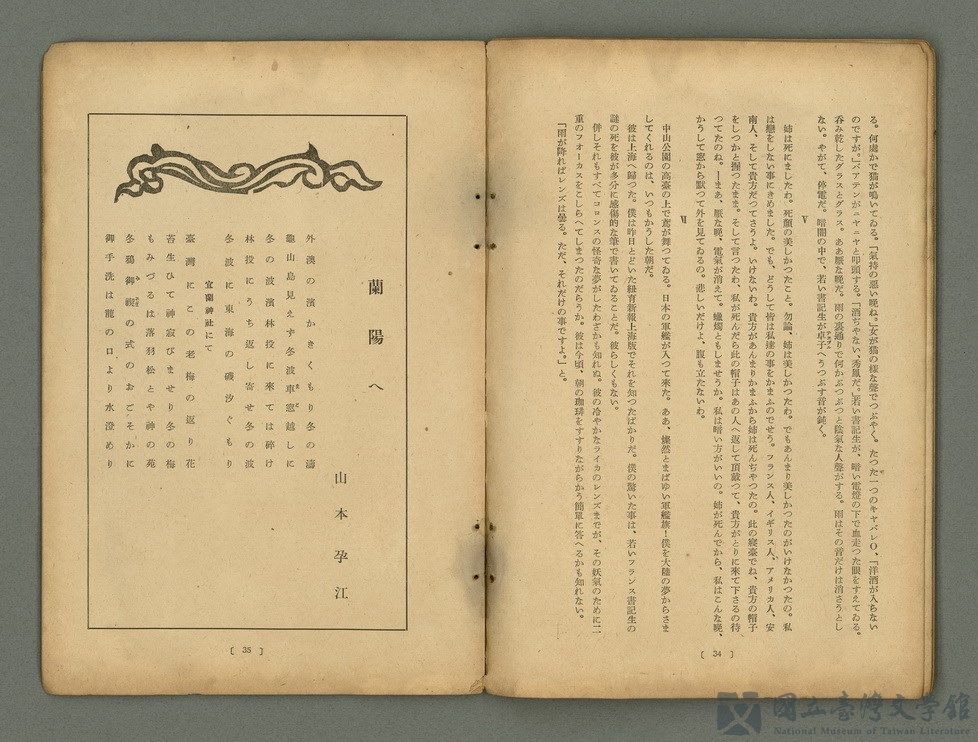 る。何處かで猫が鳴いてゐる。「氣持の惡い晩ね。」女が猫の樣な聲でつぶやく。たつた一つのキヤバレO、「洋酒が入らない
のですが。」バアテンがニヤニヤと叩頭する。「酒ぢやない、秀鳳だ。」若い書記生が、暗い電燈の下で血走つた眼をすえてゐる。
呑み乾したグラスとグラス。ああ厭な晩だ。雨の裏通りで何かぶつぶつと陰氣な人聲がする。雨はその音だけは消さうとし
ない。やがて、停電だ。暗闇の中で、若い書記生が卓子へうつぶす音が鈍く。
Ⅴ
姉は死にましたわ。死顏の美しかつたこと。勿論、姉は美しかつたわ。でもあんまり美しかつたのがいけなかつたの。私
は戀をしない事にきめました。でも、どうして皆は私達の事をかまふのでせう。フランス人、イギリス人、アメリカ人、安
南人、そして貴方だつてさうよ。いけないわ。貴方があんまりかまふから姉は死んぢやつたの。此の寢臺でね、貴方の帽子
をしつかと握つたまま。そして言つたわ、私が死んだら此の帽子はあの人へ返して頂戴つて、貴方がとりに來て下さるの待
つてたのね。ーまあ、厭な晩、電氣が消えて。蠟燭ともしませうか。私は暗い方がいいの。姉が死んでから、私はこんな晩、
かうして窓から默つて外を見てゐるの。悲しいだけよ、腹も立たないわ。
Ⅵ
中山公園の高臺の上で鳶が舞つてゐる。日本の軍艦が入つて來た。ああ、燦然とまばゆい軍艦旗！僕を大陸の夢からさま
してくれるのは、いつもかうした朝だ。
彼は上海へ歸つた。僕は昨日とどいた紐育新報上海版でそれを知つたばかりだ。僕の驚いた事は、若いフランス書記生の
謎の死を彼が多分に感傷的な筆で書いてゐることだ。彼らしくもない。
併しそれもすべてコロンスの怪奇な夢がしたわざかも知れぬ。彼の冷やかなライカのレンズまでが、その妖氣のために二
重のフオーカスをこしらへてしまつたのだらうか。彼は今頃、朝の珈琲をすすりながらかう簡單に答へるかも知れない。
「雨が降ればレンズは曇る。ただ、それだけの事ですよ。」と。
[ 34 ]
蘭陽へ
山本孕江
外澳の濱かきくもり冬の濤
龜山島見えず冬波車窓越しに
冬の波濱林投に來ては碎け
林投にうち返し寄せ冬の波
冬波に東海の磯汐ぐもり
宜蘭神社にて
臺灣にこの老梅の返り花
苔生ひて神寂びませり冬の梅
もみづるは落羽松とや神の苑
冬鵙御禊の式のおごそかに
御手洗は龍の口より水澄めり
[ 35 ]
國立臺灣文學館
National Museum of Taiwan Literature